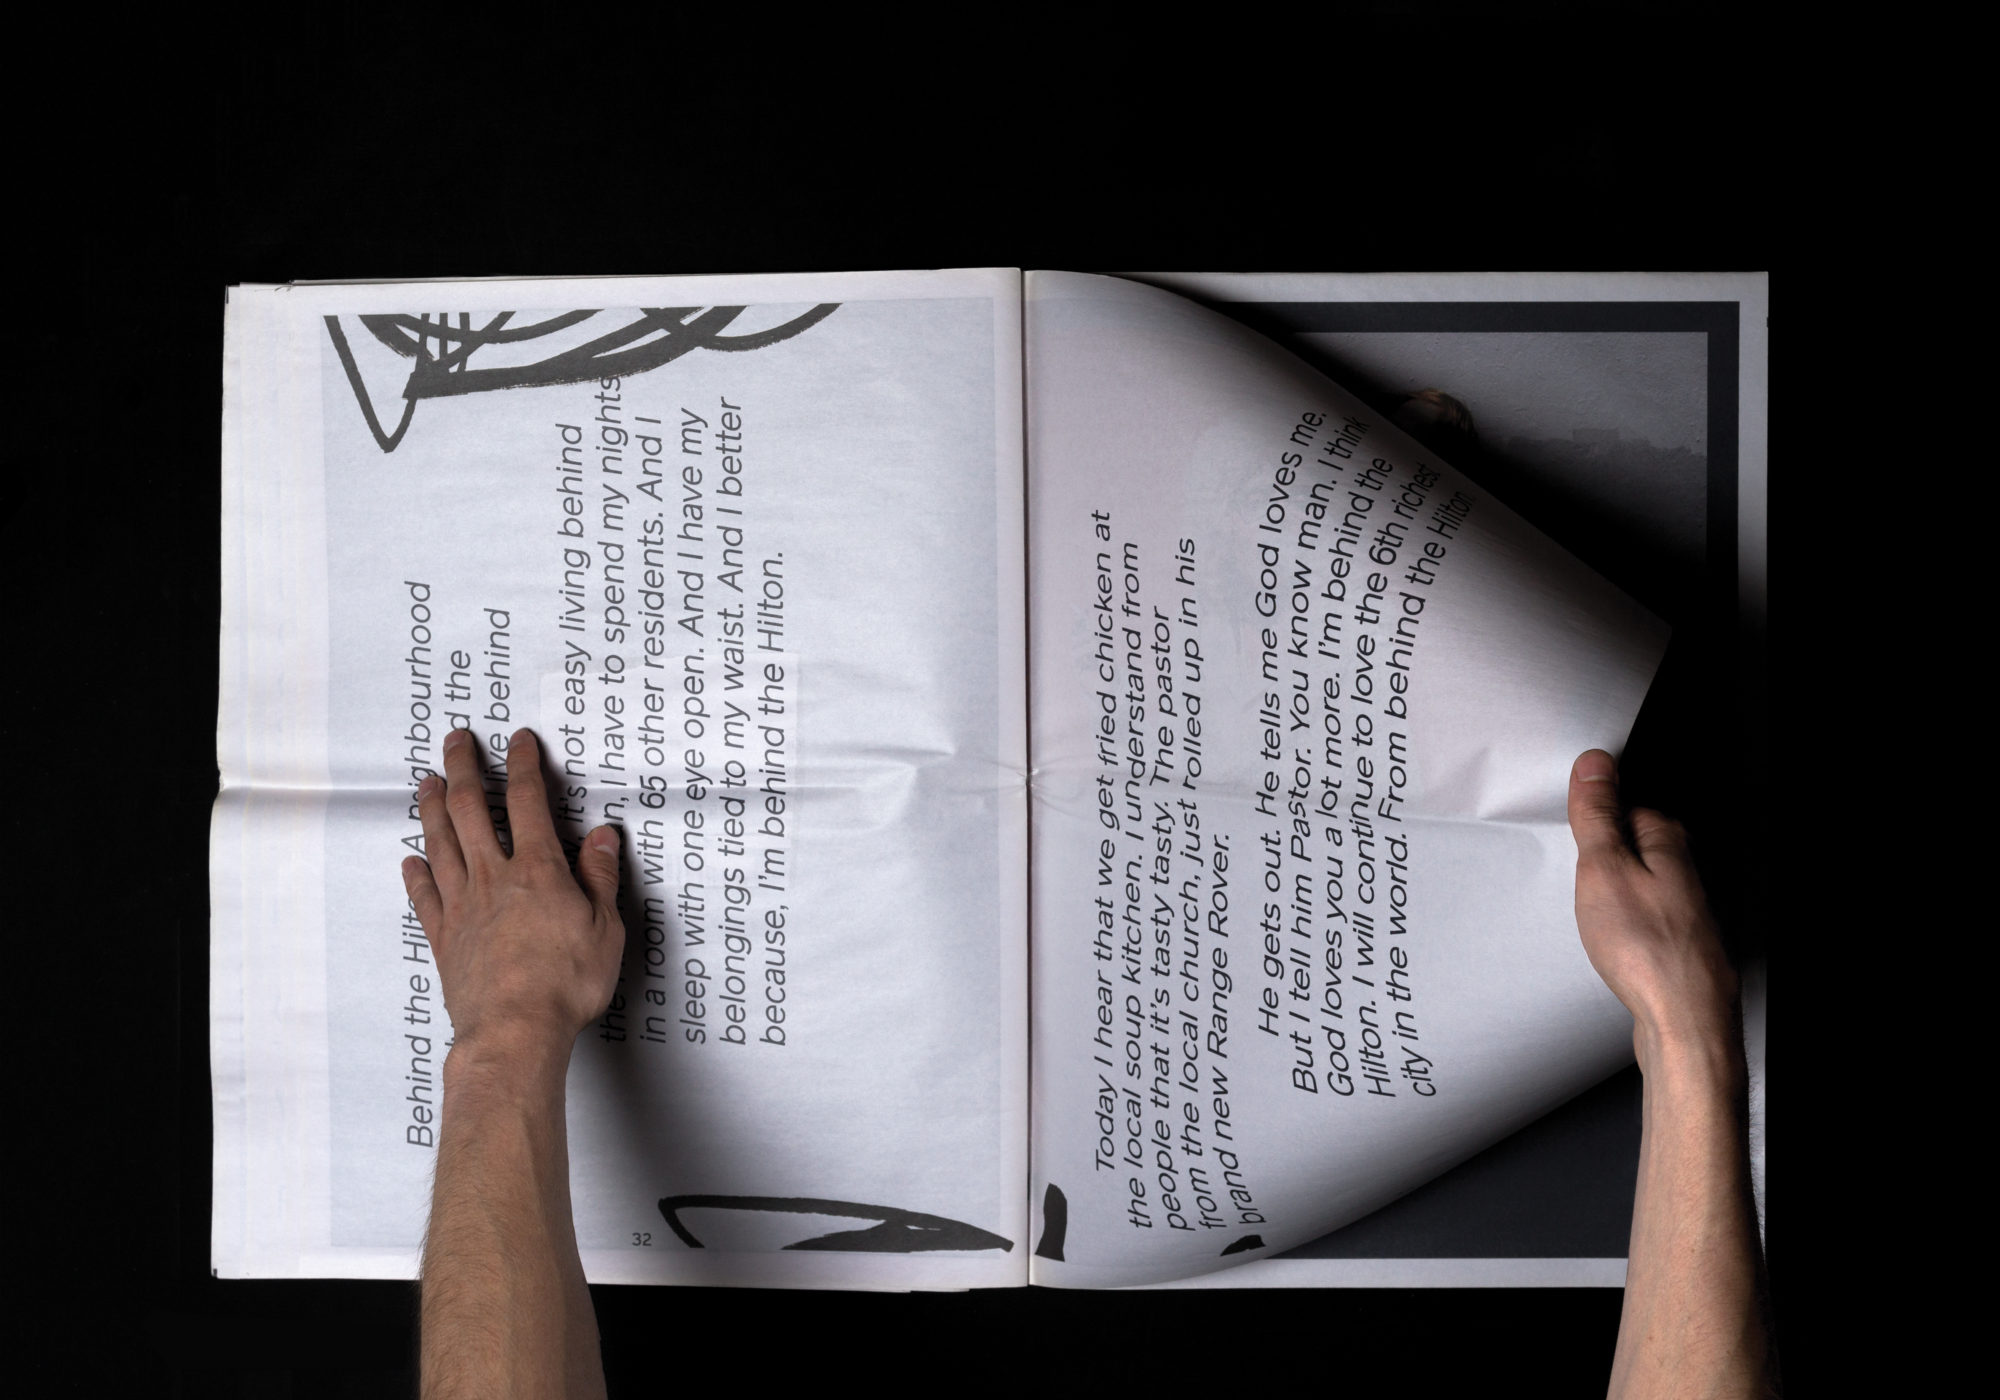 Behind the Hilton. A neighbourhood
the
live behind
it's not easy living behind
the I have to spend my nights
in a room with 65 other residents. And I
sleep with one eye open. And I have my
belongings tied to my waist. And I better
because, I'm behind the Hilton.
32
Today I hear that we get fried chicken at
the local soup kitchen. I understand from
people that it's tasty tasty. The pastor
from the local church, just rolled up in his
brand new Range Rover.
He gets out. He tells me God loves me.
But I tell him Pastor. You know man. I think
God loves you a lot more. I'm behind the
Hilton. I will continue to love the 6th richest
city in the world. From behind the Hilton.